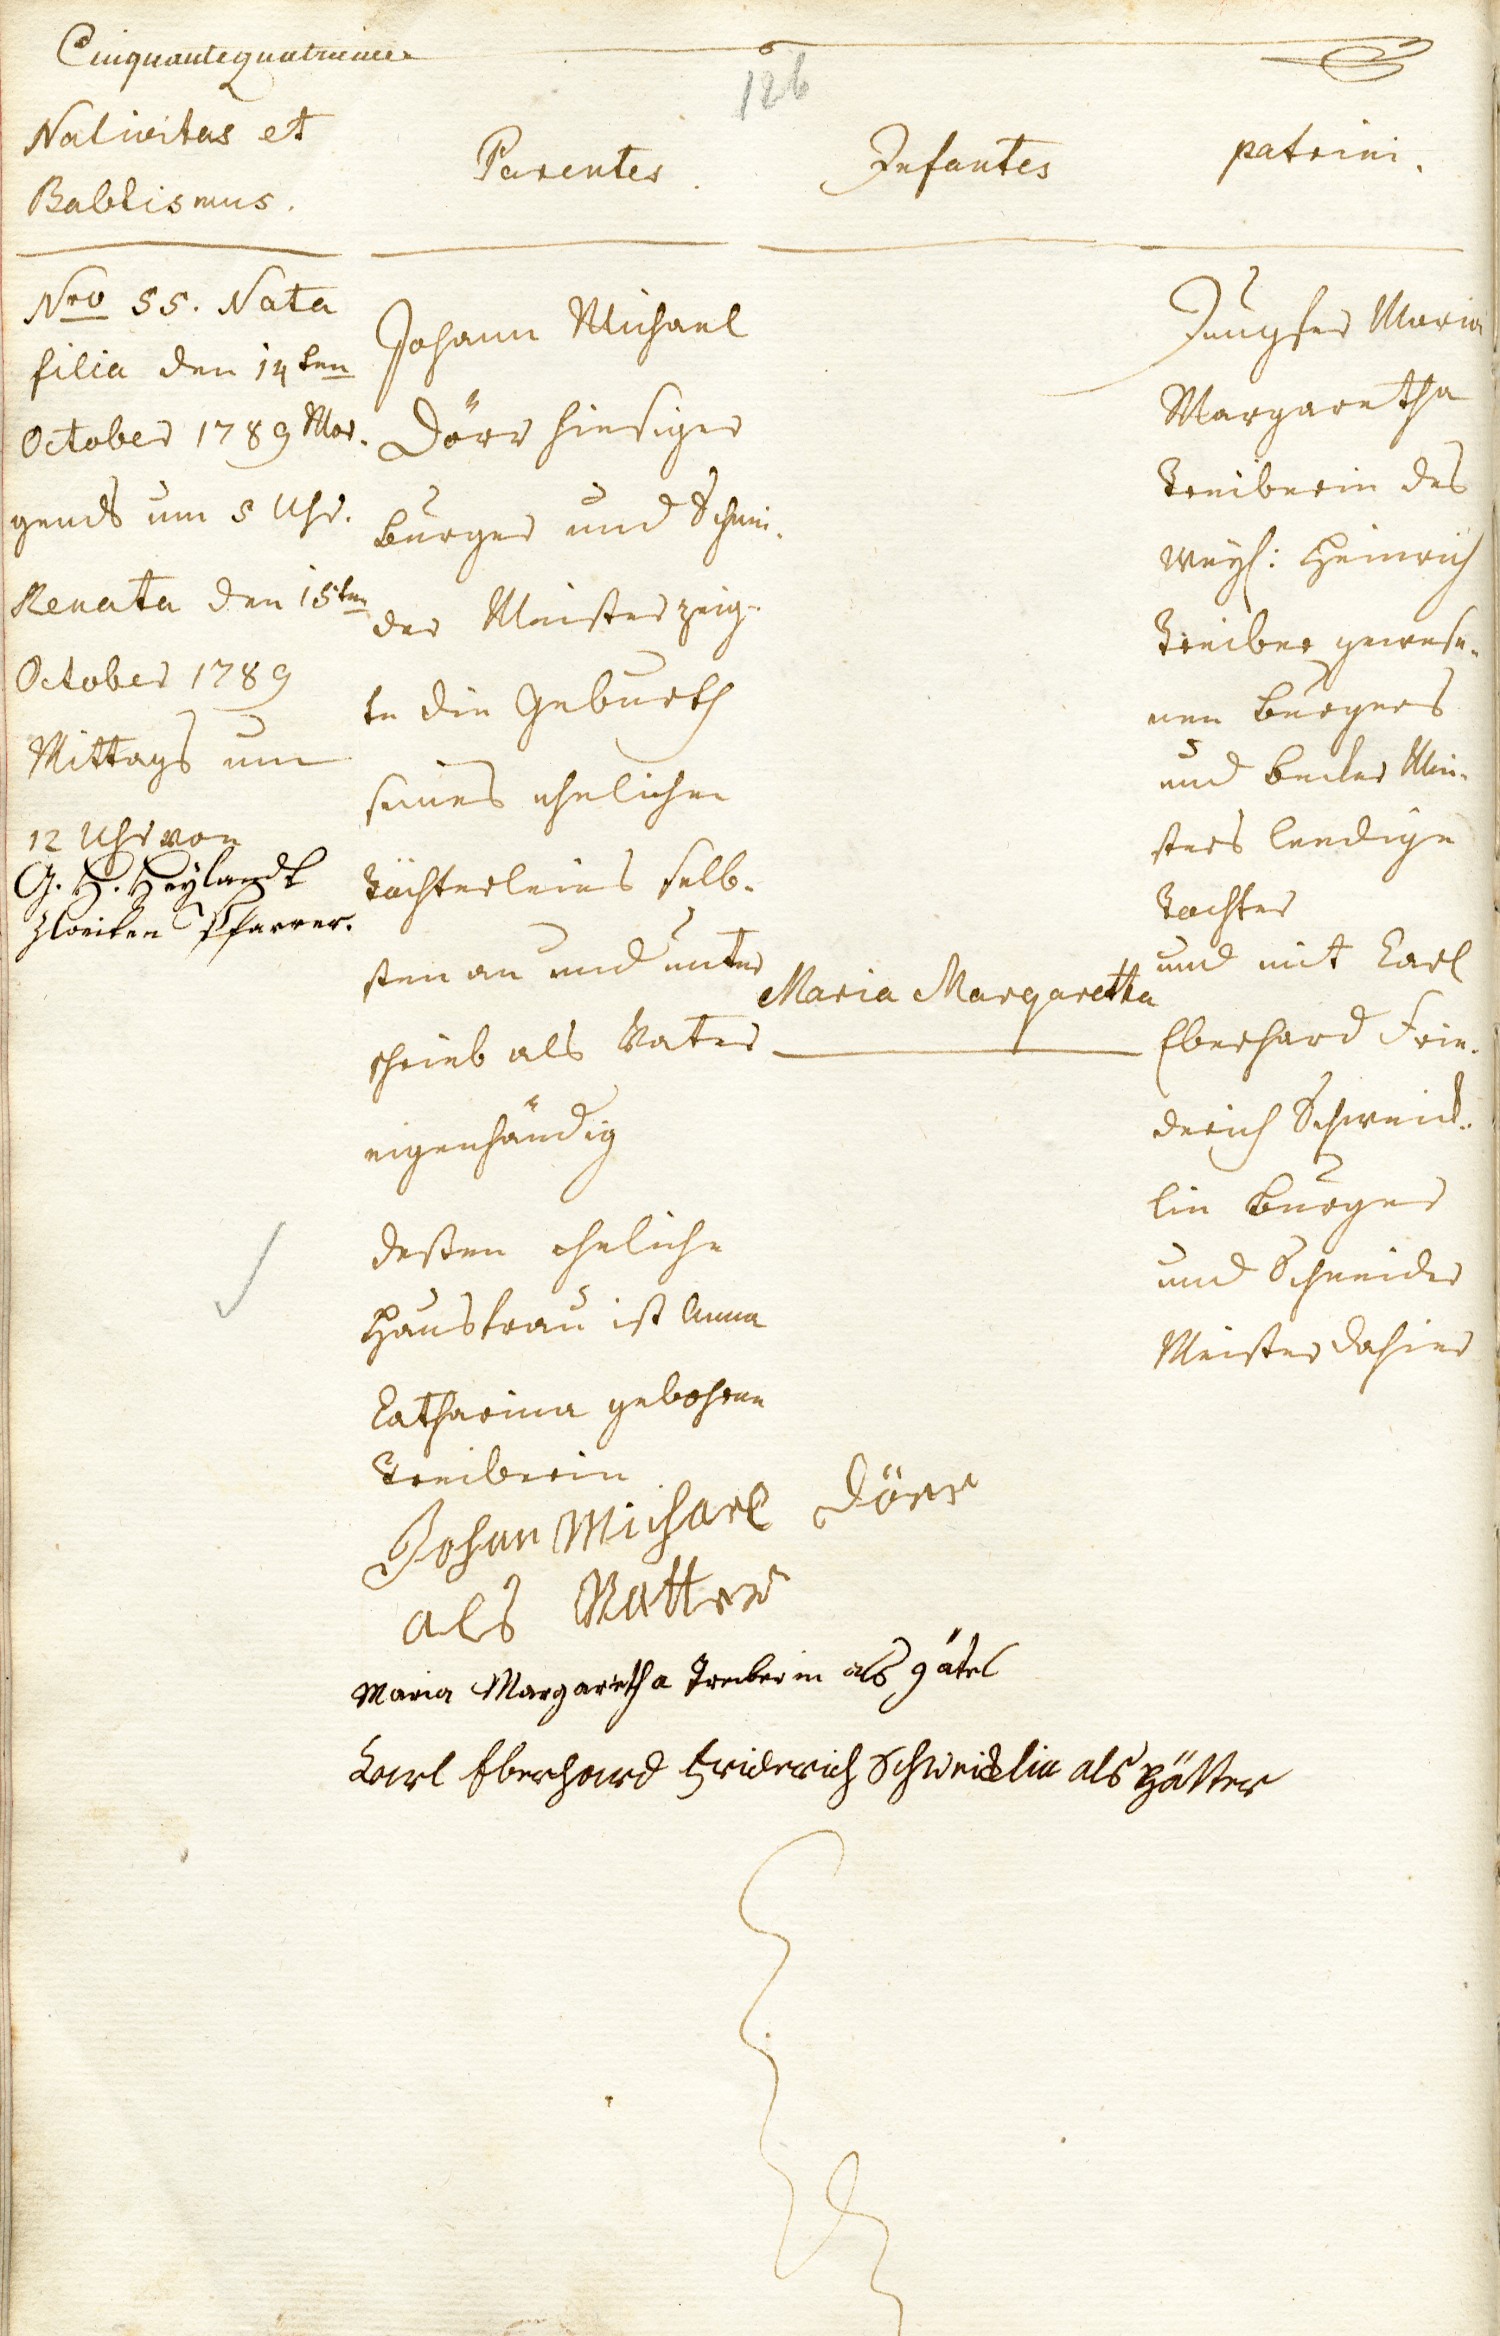 Cinquantequatrieme
126
Nativitas et
Babtismus.
Parentes.
Infantes
patrini.
Nro 55. Nata
filia den 14ten
October 1789 Mor-
gends um 5 Uhr.
Renata den 15ten
October 1789
Mittags um
12 Uhr von
G. H. Heylandt
Zweiten Pfarrer.
Johann Michael
Dörr hiesiger
burger und Schnei-
der Meister zeig-
te die Geburth
seines ehelichen
Töchterleins selb-
sten an und unter
schrieb als Vater
eigenhändig
deßen eheliche
Hausfrau ist Anna
Catharina gebohrne
Treiberin
Maria Margaretha
Jungfer Maria
Margaretha
Treiberin des
weyl: Heinrich
Treiber gewese-
nen burgers
und becker Mei-
sters leedige
Tochter
und mit Carl
Eberhard Frie-
derich Schweick-
lin burger
und Schneider
Meister dahier
Johan Michael Dörr
als Vatter
Maria Margaretha Treiberin als götel
Carl Eberhard Friderich Schweicklin als Pätter